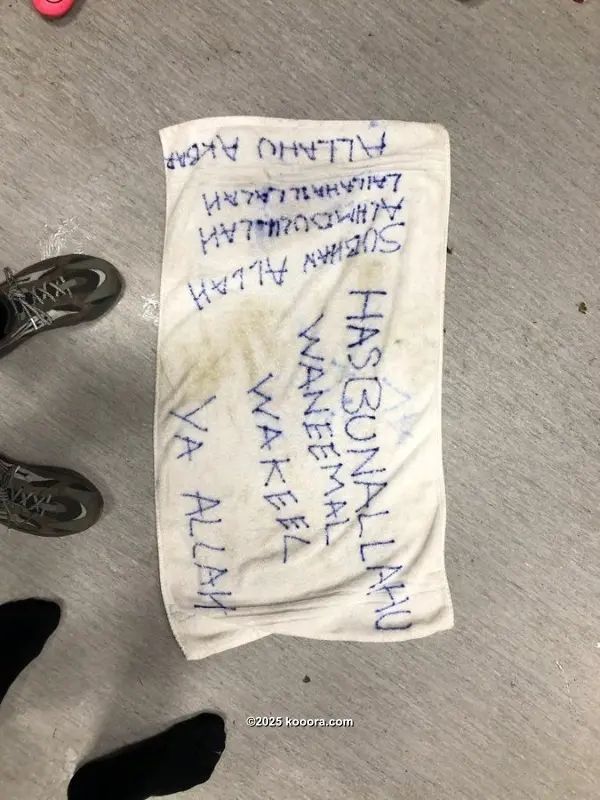 SUBHAN ALLAH
ALHMDULILLAH
LAILAHAILLALAH
ALLAHU AKBAR
HASBUNALLAHU
WANEEMAL
WAKEEL
YA ALLAH
©2025 kooora.com